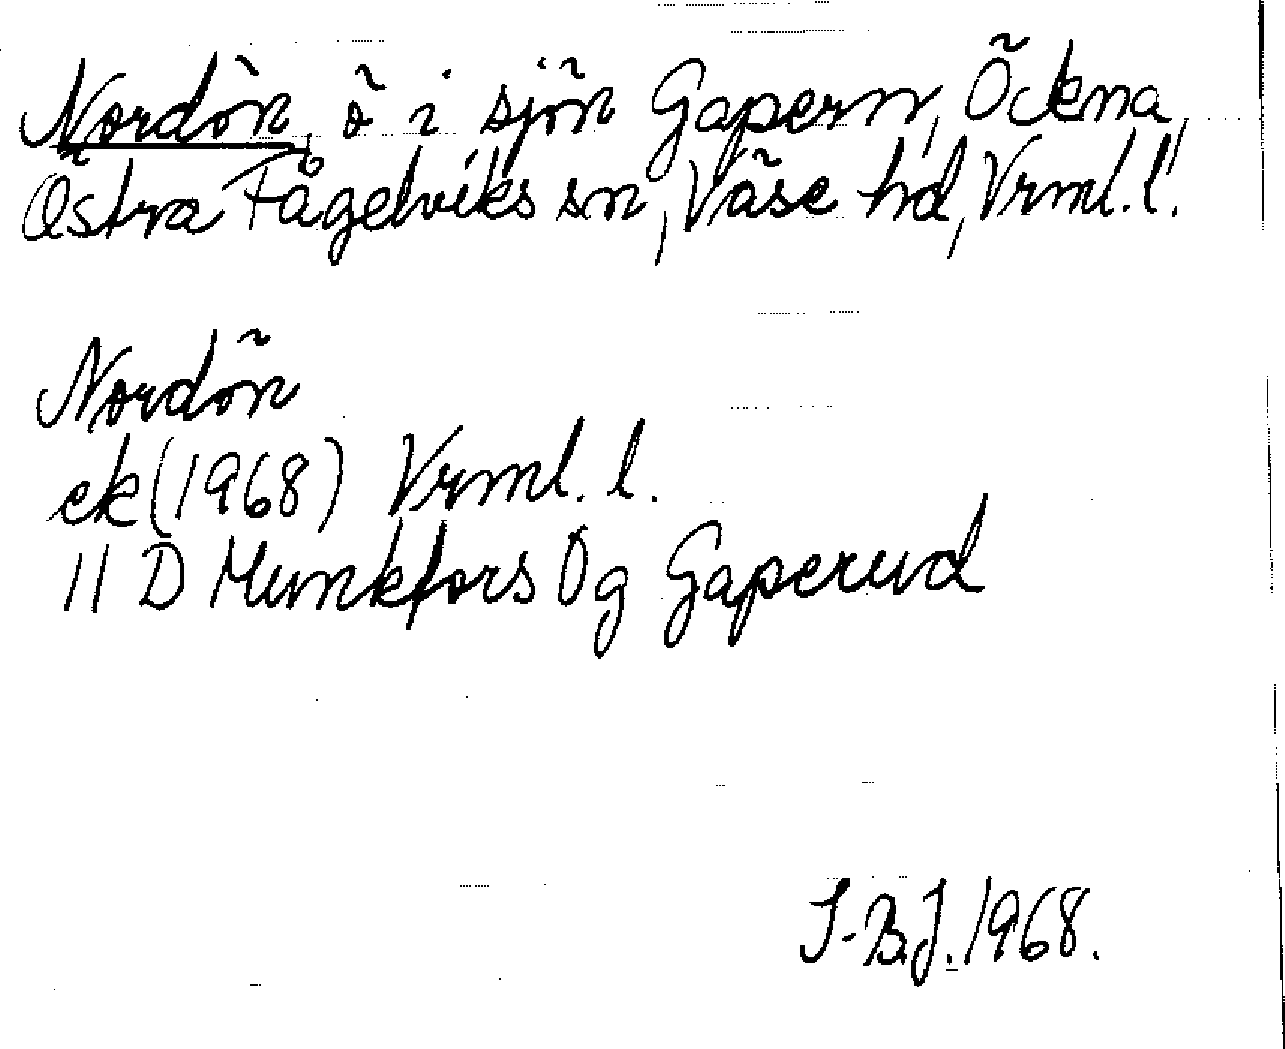 Nordön, ö i sjön Gapern, Öckna,
Östra Fågelviks sn, Väse hd, Vrml. l.
Nordön
ek (1968) Vrml. l.
11 D Munkfors 0g Gaperud
I-B.J. 1968.